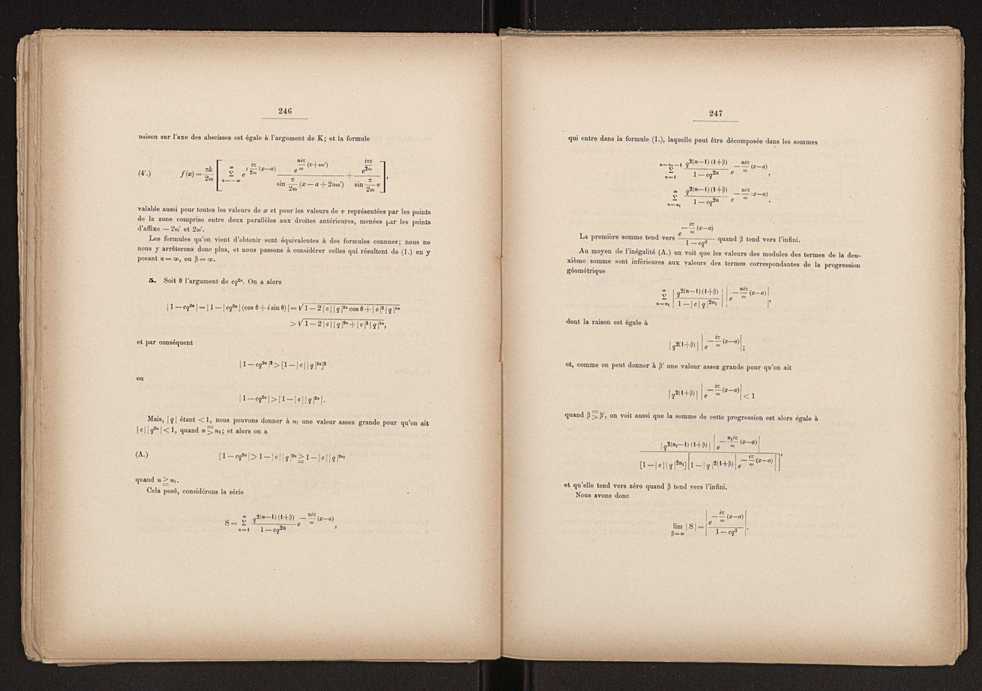 246
naison sur l'axe des abscisses est égale à l'argument de K; et la formule
(4'.) f(x) = πk/2ω [ Σ_{n=−∞}^{∞} e^{i (iπ/2ω)(x−a)}
valable aussi pour toutes les valeurs de x et pour les valeurs de v représentées par les points
de la zone comprise entre deux parallèles aux droites antérieures, menées par les points
d'affixe — 2ω' et 2ω'.
Les formules qu'on vient d'obtenir sont équivalentes à des formules connues; nous ne
nous y arrêterons donc plus, et nous passons à considérer celles qui résultent de (1.) en y
posant α = ∞, ou β = ∞.
5. Soit θ l'argument de cq²ⁿ. On a alors
|1 — cq²ⁿ| = |1 — |cq²ⁿ| (cos θ + i sin θ)| = √1 — 2|c||q|²ⁿ cos θ + |c|²|q|⁴ⁿ
> √1 — 2|c||q|²ⁿ + |c|²|q|⁴ⁿ,
et par conséquent
|1 — cq²ⁿ|² > [1 — |c||q|²ⁿ]²
ou
|1 — cq²ⁿ| > |1 — |c||q|²ⁿ|.
Mais, |q| étant < 1, nous pouvons donner à n₁ une valeur assez grande pour qu'on ait
|c||q²ⁿ| < 1, quand n ≧ n₁; et alors on a
(A.) |1 — cq²ⁿ| > 1 — |c||q|²ⁿ ≧ 1 — |c||q|²ⁿ¹
quand n ≧ n₁.
Cela posé, considérons la série
S = Σ_{n=1}^{∞} q^{2(n−1)(1+β)} / (1 — cq²ⁿ) e^{−(niπ/ω)(x−a)},
247
qui entre dans la formule (1.), laquelle peut être décomposée dans les sommes
Σ_{n=1}^{n=n₁−1} q^{2(n−1)(1+β)} / (1 — cq²ⁿ) e^{−(niπ/ω)(x−a)},
Σ_{n=n₁}^{∞} q^{2(n−1)(1+β)} / (1 — cq²ⁿ) e^{−(niπ/ω)(x−a)}.
La première somme tend vers e^{−(iπ/ω)(x−a)} / (1 — cq²) quand β tend vers l'infini.
Au moyen de l'inégalité (A.) on voit que les valeurs des modules des termes de la deu-
xième somme sont inférieures aux valeurs des termes correspondantes de la progression
géométrique
Σ_{n=n₁}^{∞} | q^{2(n−1)(1+β)} / (1 — |c||q|²ⁿ¹) | | e^{−(niπ/ω)(x−a)} |,
dont la raison est égale à
|q^{2(1+β)}| |e^{−(iπ/ω)(x−a)}|;
et, comme on peut donner à β' une valeur assez grande pour qu'on ait
|q^{2(1+β)}| |e^{−(iπ/ω)(x−a)}| < 1
quand β ≧ β', on voit aussi que la somme de cette progression est alors égale à
|q^{2(n₁−1)(1+β)}| |e^{−(n₁iπ/ω)(x−a)}| / [1 — |c||q|²ⁿ¹] [1 — |q|^{2(1+β)} |e^{−(iπ/ω)(x−a)}|],
et qu'elle tend vers zéro quand β tend vers l'infini.
Nous avons donc
lim_{β=∞} |S| = | e^{−(iπ/ω)(x−a)} / (1 — cq²) |.